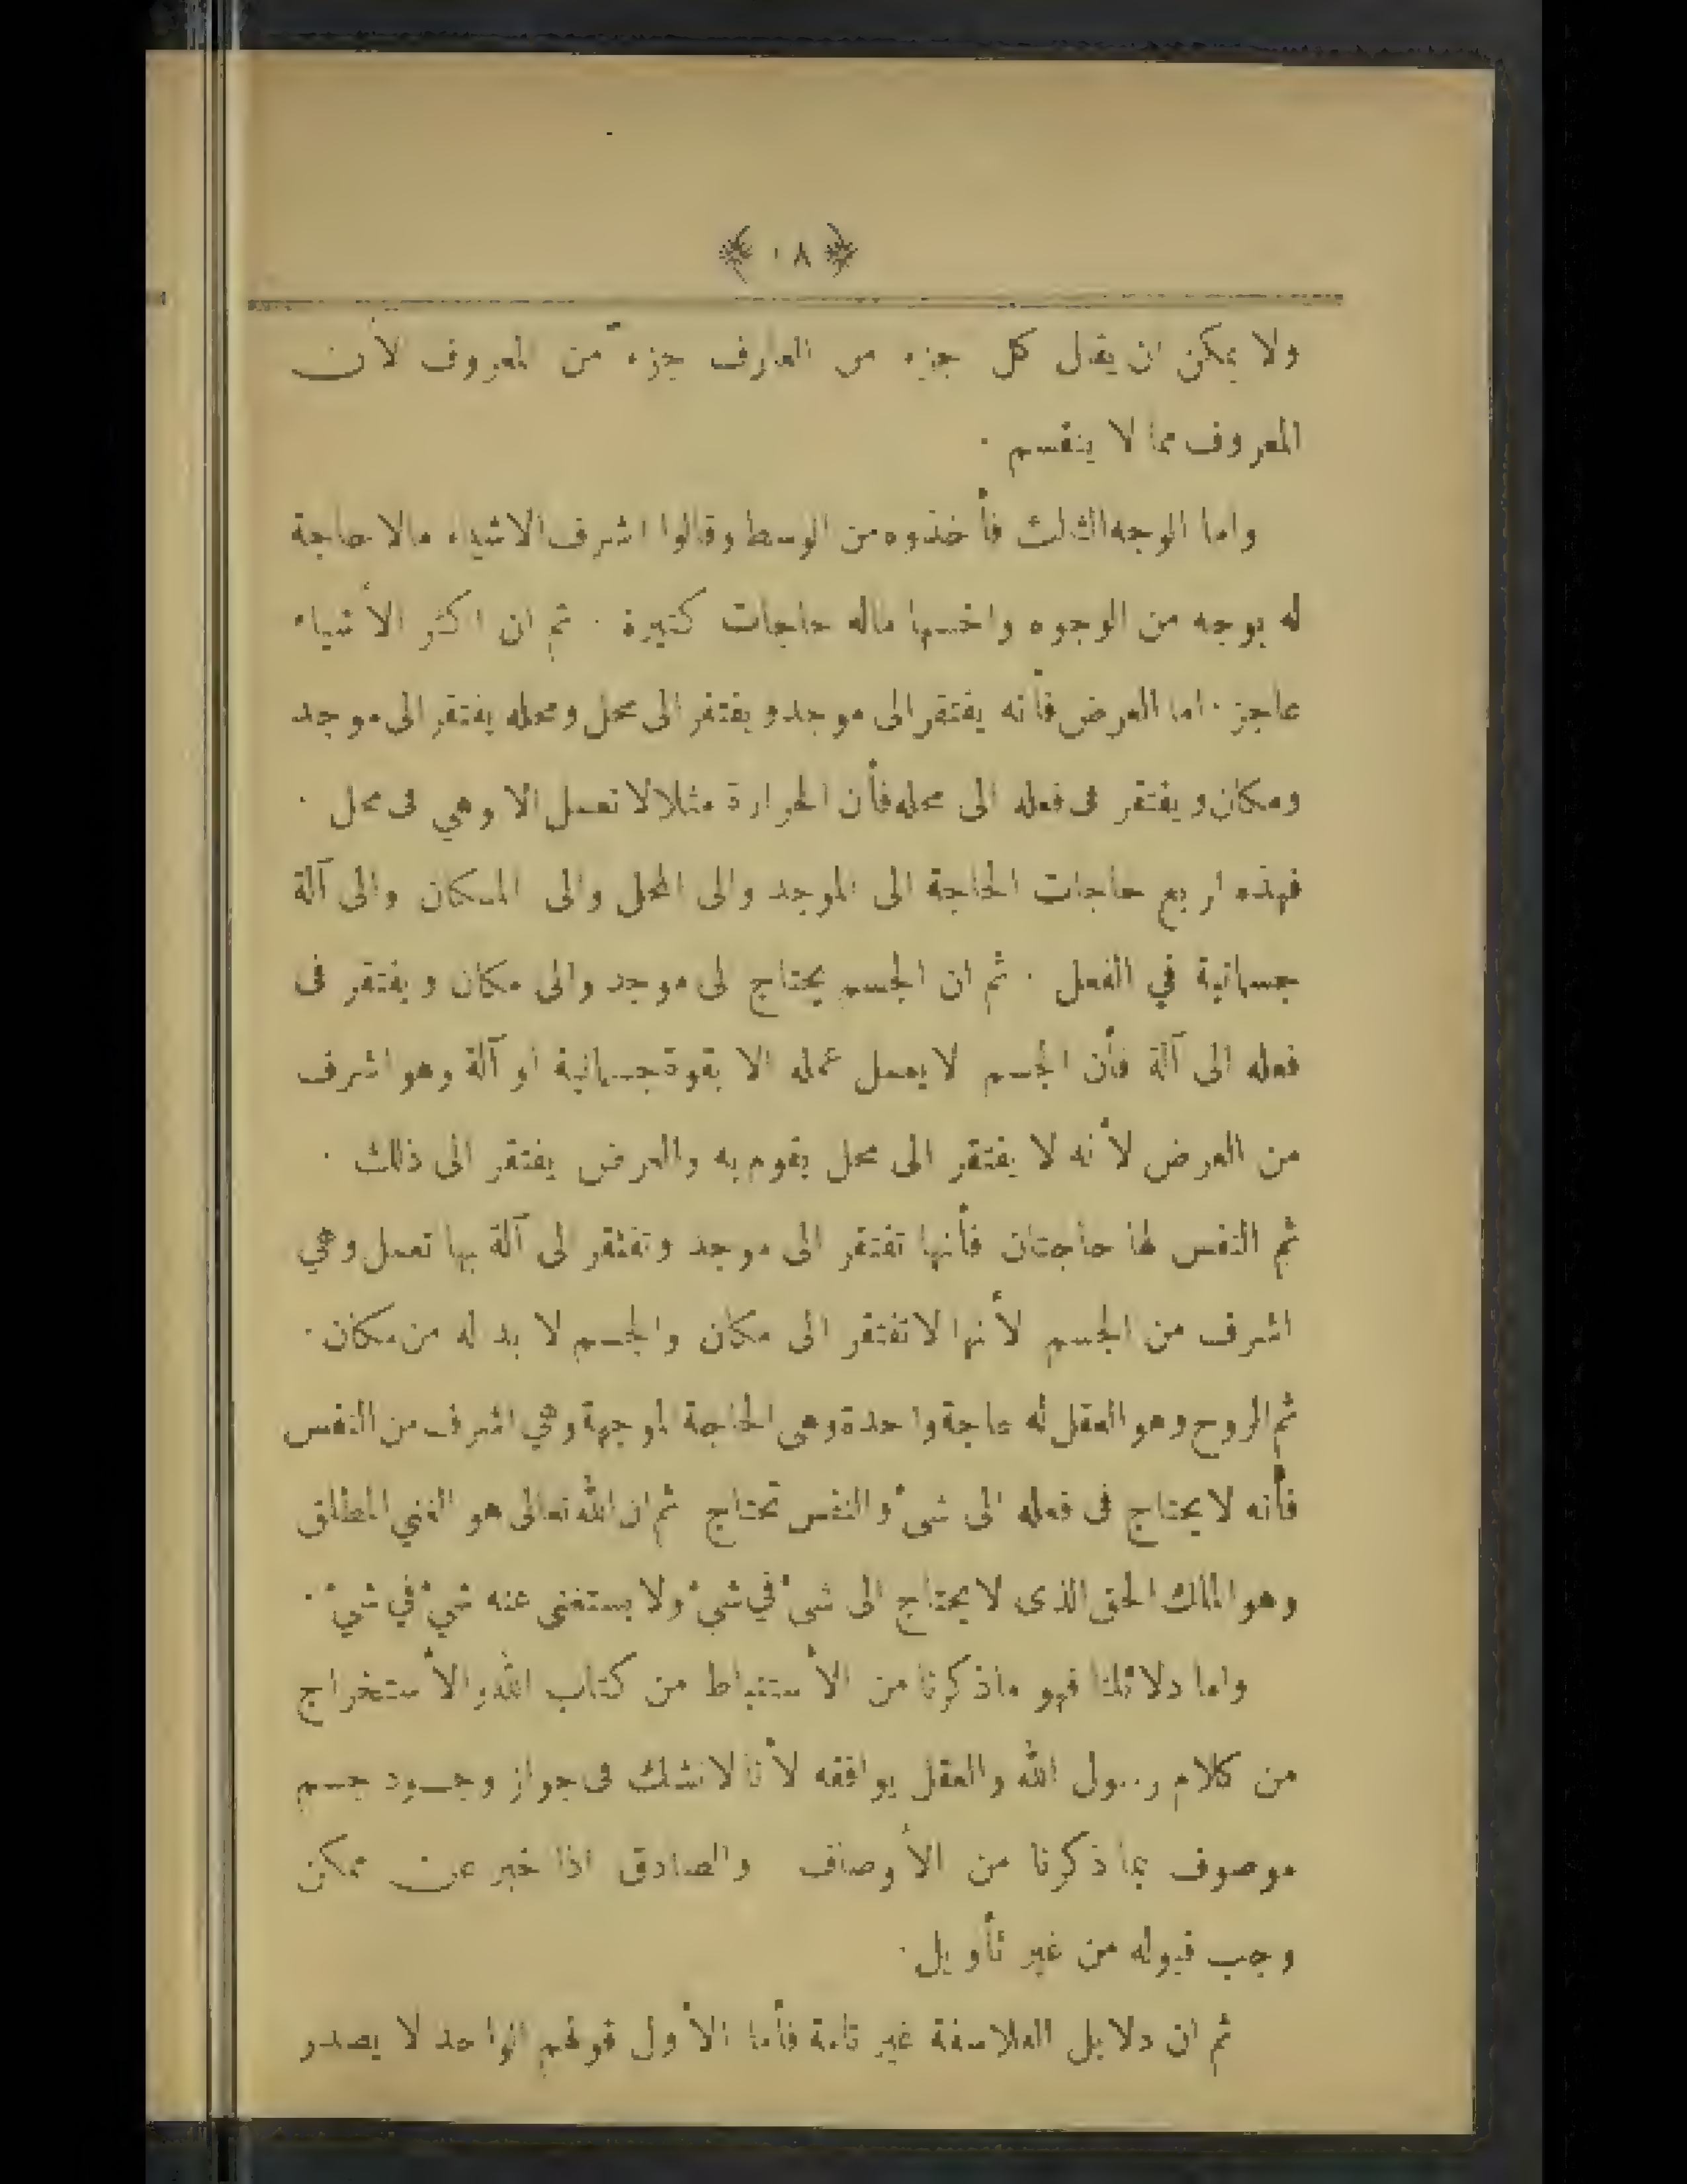 ﴿ ١٨ ﴾
ولا يمكن ان يقال كل جزء من العارف جزء من المعروف لأن
المعروف مما لا ينقسم ·
واما الوجه الثالث فأخذوه من الوسط وقالوا اشرف الاشياء مالا حاجة
له بوجه من الوجوه واخسها ماله حاجات كثيرة · ثم ان اكثر الأشياء
عاجز · اما العرض فأنه يفتقر الى موجد ويفتقر الى محل ومحله يفتقر الى موجد
ومكان ويفتقر فى فعله الى محله فأن الحرارة مثلا لا تعمل الا وهي فى محل ·
فهذه اربع حاجات الحاجة الى الموجد والى المحل والى المكان والى آلة
جسمانية في الفعل · ثم ان الجسم يحتاج لى موجد والى مكان ويفتقر فى
فعله الى آلة فأن الجسم لا يعمل عمله الا بقوة جسمانية او آلة وهو اشرف
من العرض لأنه لا يفتقر الى محل يقوم به والعرض يفتقر الى ذلك ·
ثم النفس لها حاجتان فأنها تفتقر الى موجد وتفتقر لى آلة بها تعمل وهي
اشرف من الجسم لأنها لا تفتقر الى مكان والجسم لا بد له من مكان ·
ثم الروح وهو العقل له حاجة واحدة وهى الحاجة الموجهة وهي اشرف من النفس
فأنه لا يحتاج فى فعله الى شىء والنفس تحتاج ثم ان الله تعالى هو الغني المطلق
وهو الملك الحق الذى لا يحتاج الى شىء في شىء ولا يستغنى عنه شيء في شيء ·
واما دلائلنا فهو ماذكرنا من الأستنباط من كتاب الله والأستخراج
من كلام رسول الله والعقل يوافقه لأنا لا نشك فى جواز وجود جسم
موصوف بما ذكرنا من الأوصاف والصادق اذا خبر عن ممكن
وجب قبوله من غير تأويل ·
ثم ان دلايل الفلاسفة غير تامة فأما الأول قولهم الواحد لا يصدر